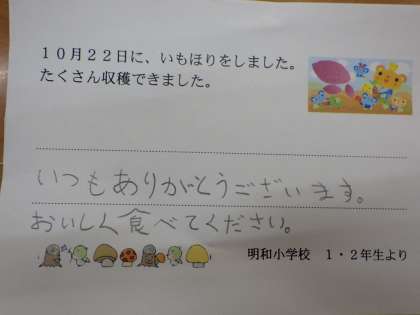 １０月２２日に、いもほりをしました。
たくさん収穫できました。
いつもありがとうございます。
おいしく食べてください。
明和小学校　１・２年生より